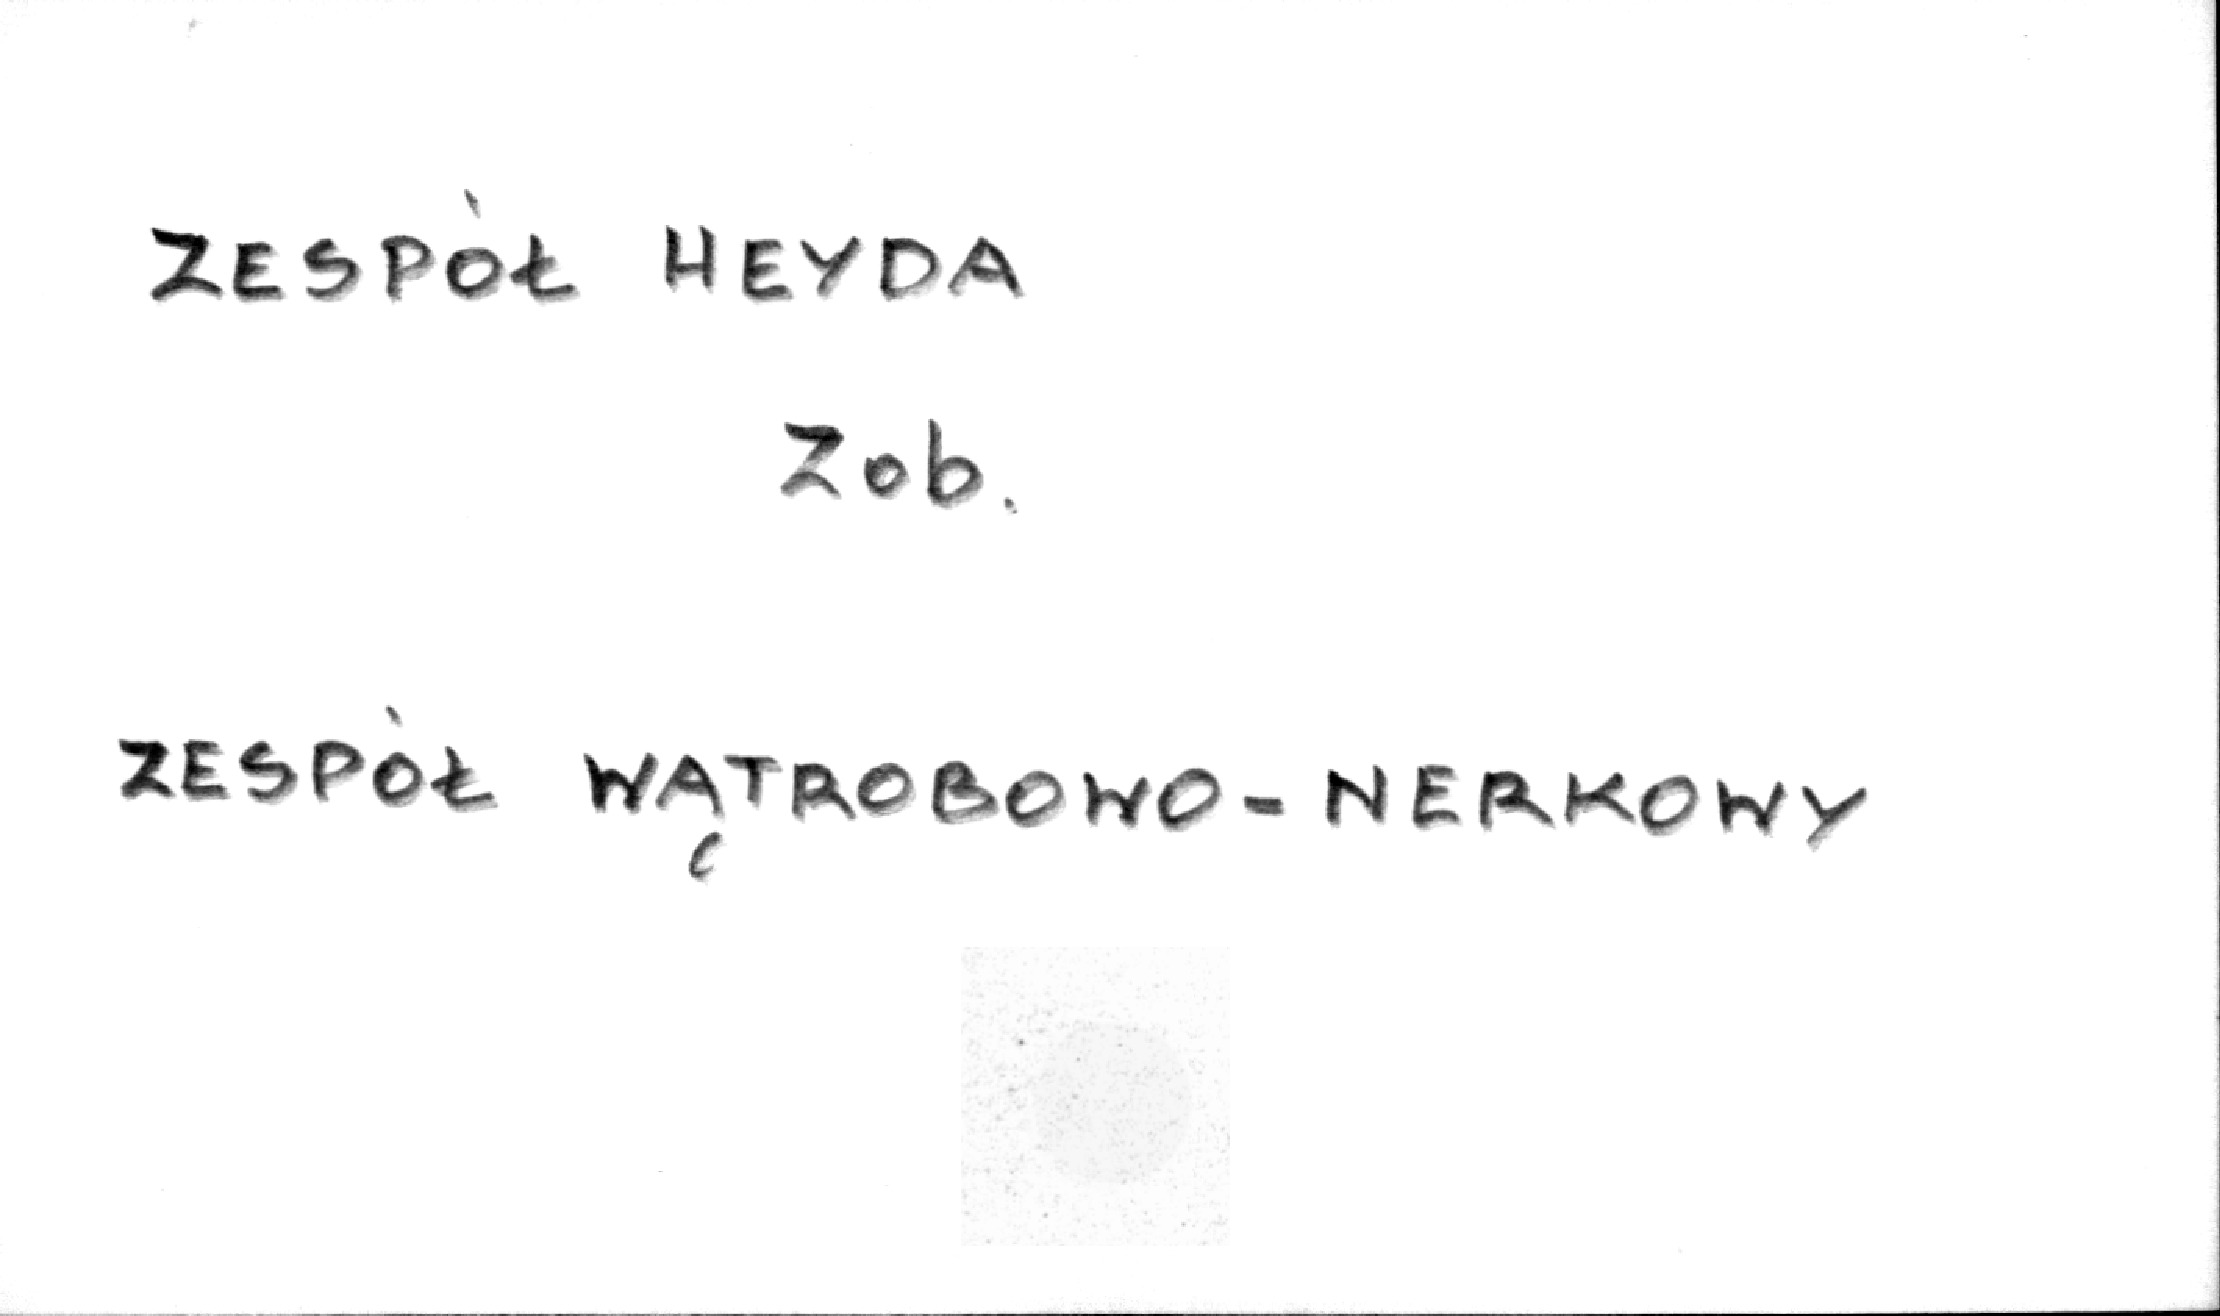 ZESPÓŁ HEYDA
Zob.
ZESPÓŁ WĄTROBOWO-NERKOWY